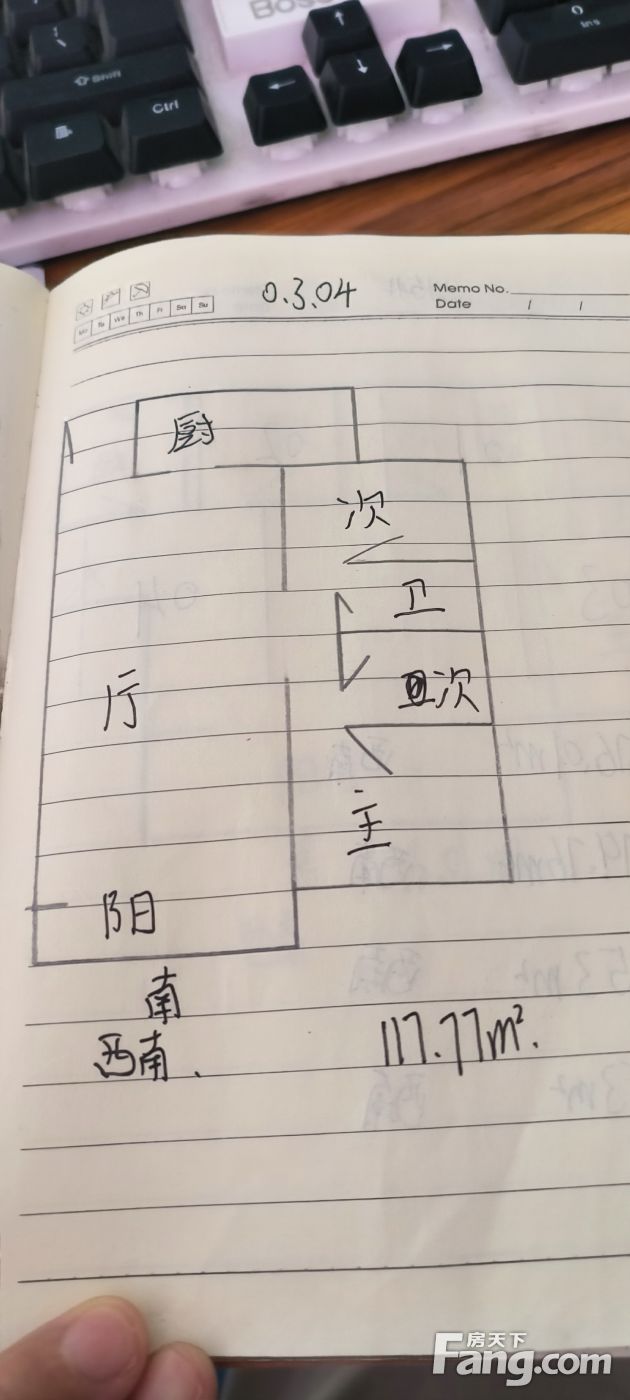 Shift
Ctrl
Ins
0.3.04
Memo No.
Mo Tu We Th Fr Sa Su
Date / /
厨
次
卫
次
厅
主
阳
南
西南.
117.77m².
房天下
Fang.com